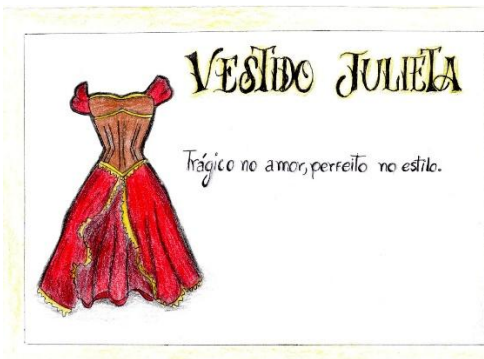 VESTIDO JULIETA
Trágico no amor, perfeito no estilo.